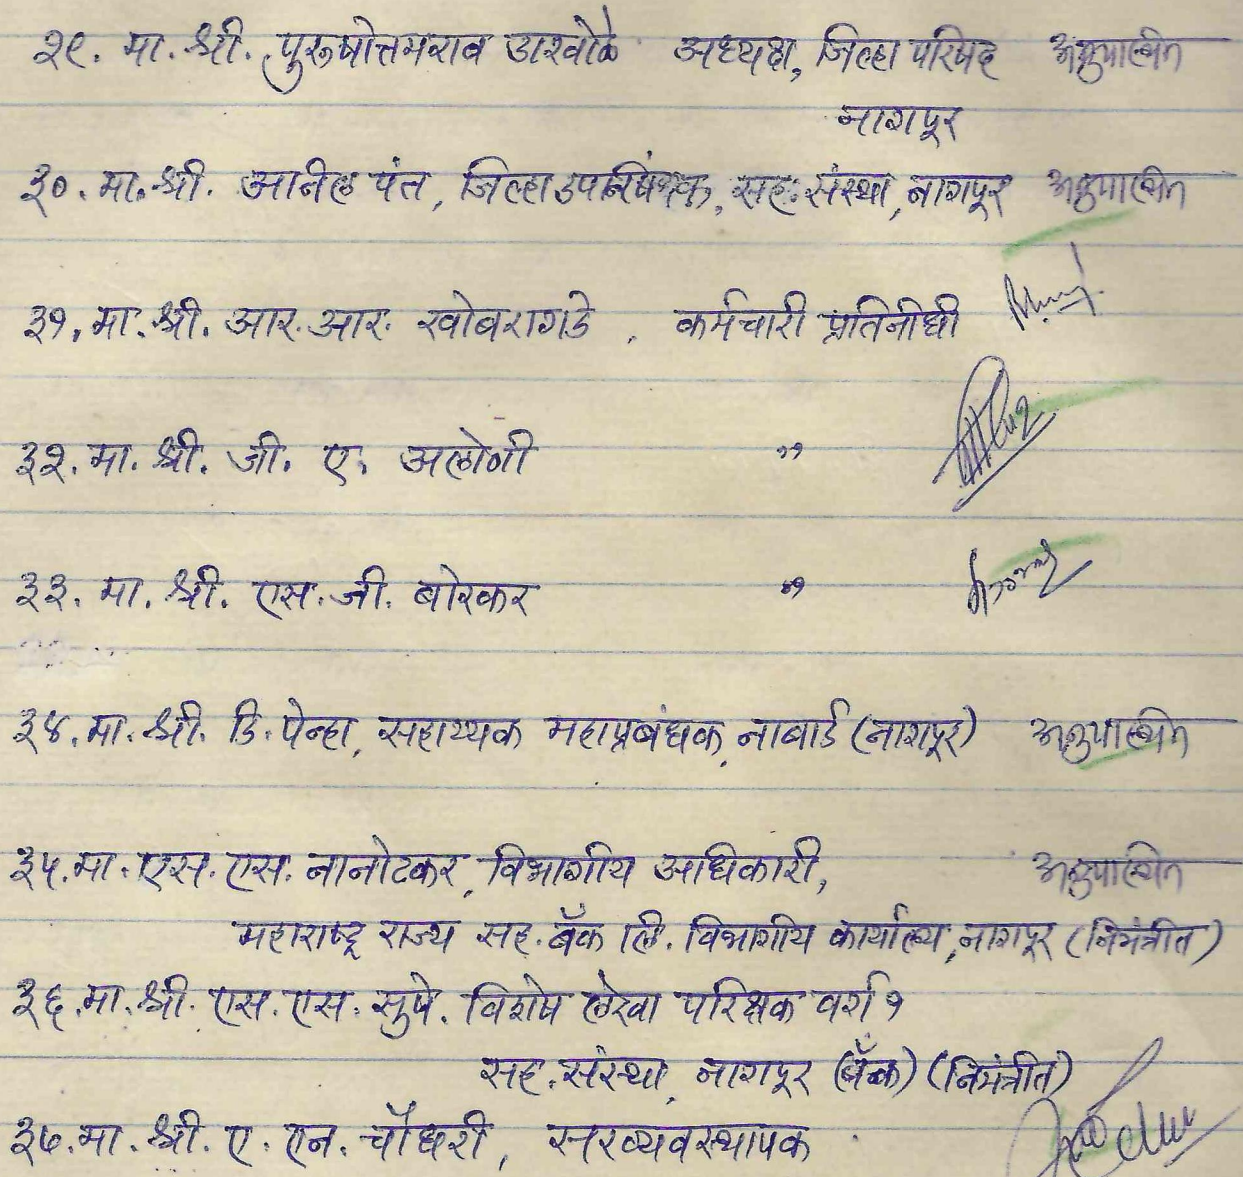 २९. मा. श्री. पुरूषोत्तमराव डाखोळे अध्यक्ष, जिल्हा परिषद अनुपास्थित
नागपूर
३०. मा. श्री. आनिल पंत, जिल्हा उपनिबंधक, सह. संस्था, नागपूर अनुपास्थित
३१. मा. श्री. आर. आर. खोबरागडे, कर्मचारी प्रतिनीधी
३२. मा. श्री. जी. ए. अलोणी "
३३. मा. श्री. एस. जी. बोरकर "
३४. मा. श्री. डि. पेन्हा, सहाय्यक महाप्रबंधक, नाबार्ड (नागपूर) अनुपास्थित
३५. मा. एस. एस. नानोटकर, विभागीय आधिकारी, अनुपास्थित
महाराष्ट्र राज्य सह. बँक लि. विभागीय कार्यालय, नागपूर (निमंत्रीत)
३६. मा. श्री. एस. एस. सुपे. विशेष लेखा परिक्षक वर्ग १
सह. संस्था, नागपूर (बँक) (निमंत्रीत)
३७. मा. श्री. ए. एन. चौधरी, सरव्यवस्थापक